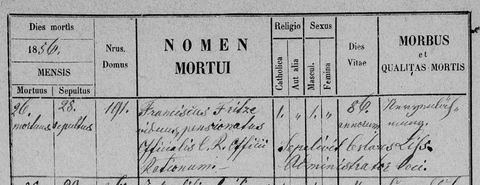 Dies mortis
1856.
MENSIS
Mortuus Sepultus
Nrus. Domus
NOMEN MORTUI
Religio
Catholica
Aut alia
Sexus
Mascul.
Femina
Dies Vitae
MORBUS
et
QUALITAS MORTIS
26. 28. 191. Franciscus Fritze 1. " 1. " 86.
mortuus sepultus viduus, pensionatus annorum
Officialis C. R. Officii Sepelivit
Rationum Administrator loci.